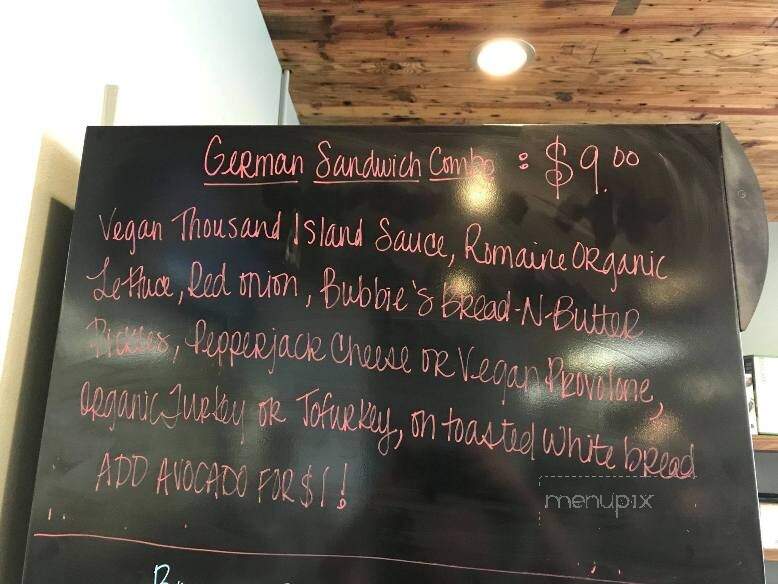 German Sandwich Combo : $9.00
Vegan Thousand Island Sauce, Romaine Organic
Lettuce, Red onion, Bubbie's Bread-N-Butter
Pickles, Pepperjack Cheese or Vegan Provolone,
Organic Turkey or Tofurkey, on toasted White bread
ADD AVOCADO FOR $1!
menupix